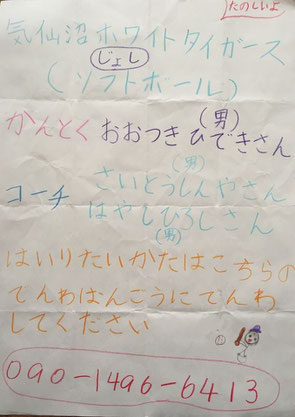 たのしいよ
気仙沼ホワイトタイガース
じょし
(ソフトボール)
(男)
かんとく おおつきひできさん
(男)
コーチ さいとうしんやさん
はやしひろしさん
(男)
はいりたいかたはこちらの
でんわばんごうにでんわ
してください
090-1496-6413